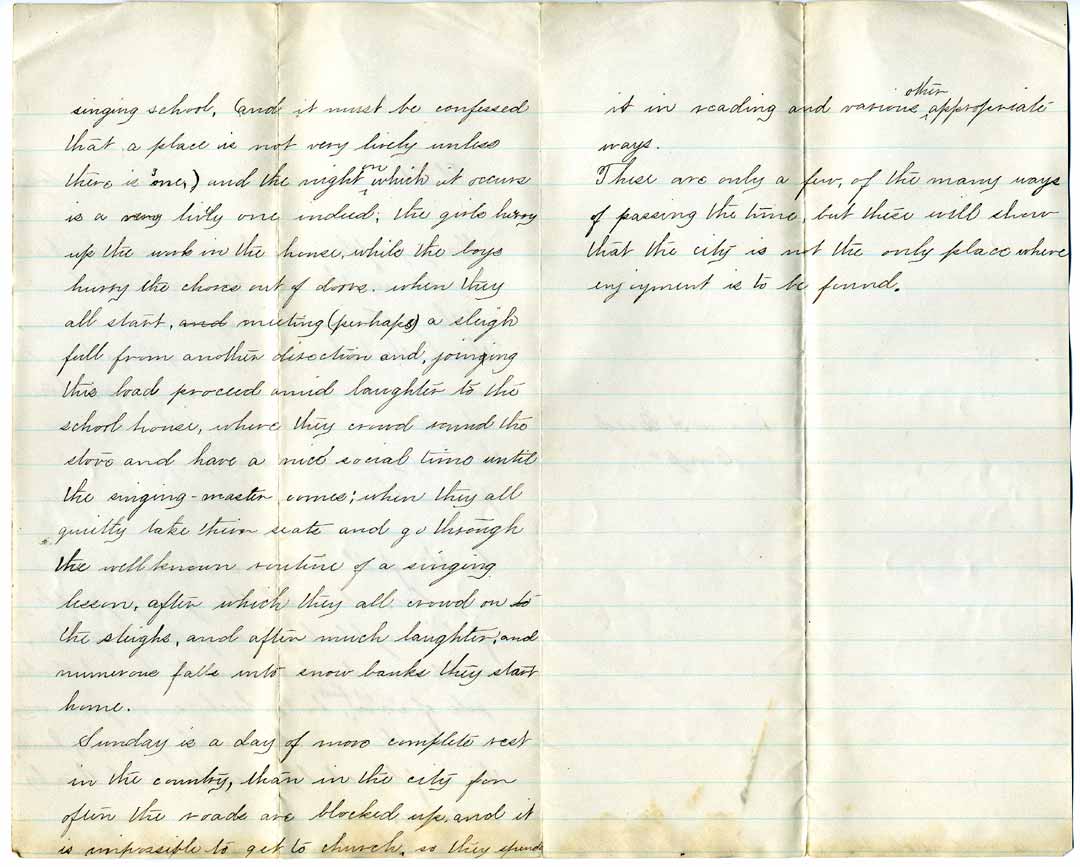 singing school, (and it must be confessed
that a place is not very lively unless
there is one,) and the night on which it occurs
is a very livly one indeed; the girls hurry
up the work in the house, while the boys
hurry the chores out of doors. when they
all start, and meeting (perhaps) a sleigh
full from another direction and, joinging
this load proceed amid laughter to the
school house, where they crowd round the
stove and have a nice social time until
the singing-master comes; when they all
quietly take their seats and go through
the well known routine of a singing
lesson, after which they all crowd on to
the sleighs, and after much laughter, and
numerous falls into snow banks they start
home.
Sunday is a day of more complete rest
in the country, than in the city for
often the roads are blocked up, and it
is impossible to get to church, so they spend
it in reading and various other appropriate
ways.
These are only a few, of the many ways
of passing the time, but these will show
that the city is not the only place where
enjoyment is to be found.